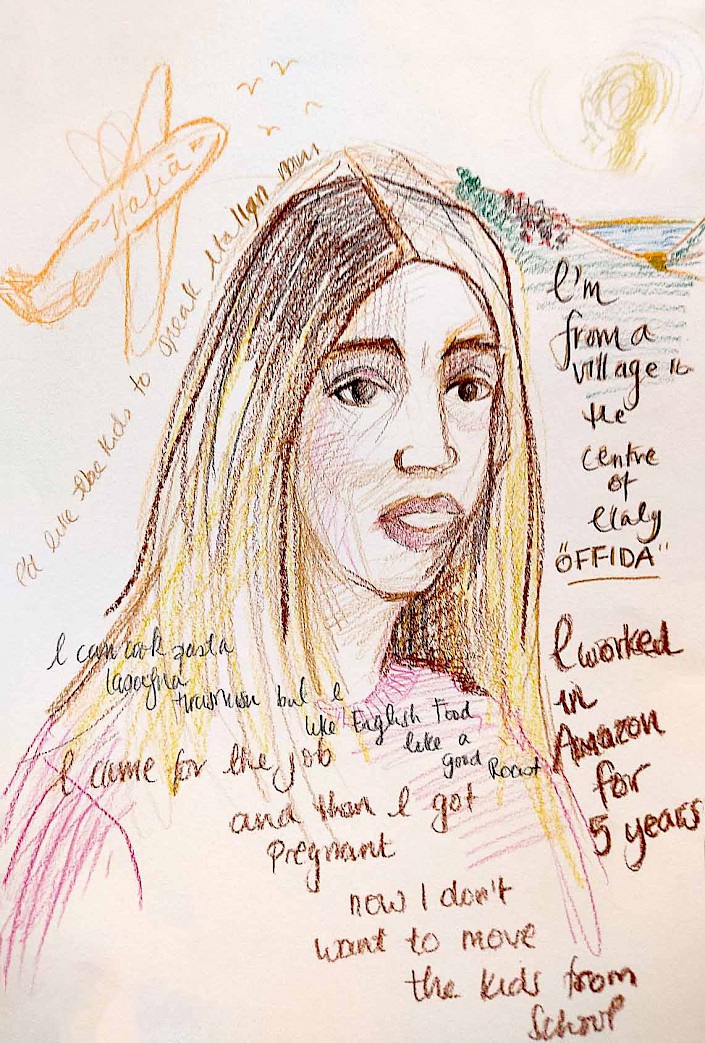 Italia
I'd like the kids to speak Italian
I'm
from a
village in
the
centre
of
Italy
"OFFIDA"
I worked
in
Amazon
for
5 years
I can cook pasta
lasagna
tiramisu but I
like English Food
like a
good Roast
I came for the job
and than I got
pregnant
now I don't
want to move
the kids from
School